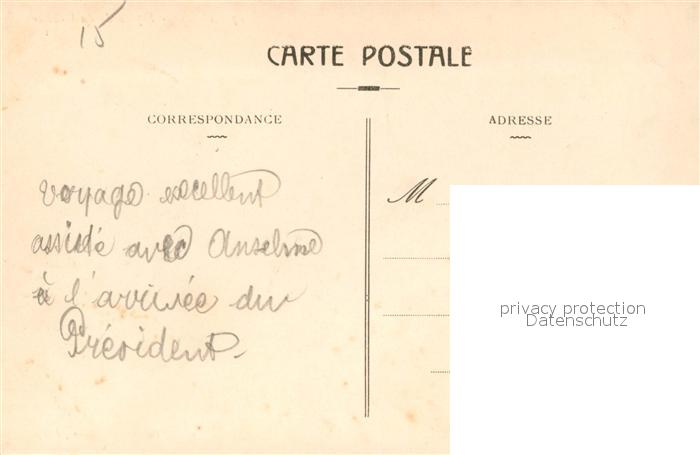 15
CARTE POSTALE
CORRESPONDANCE
ADRESSE
voyage excellent
assisté avec Anselme
à l'arrivée du
Président
M
privacy protection
Datenschutz